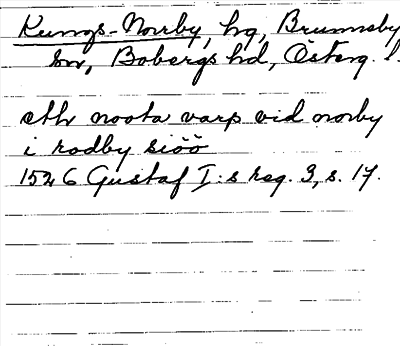 Kungs-Norby, hg, Brunnsby
sn, Bobergs hd, Österg. l.
eth noota varp vid norby
i rodby siöö
1526 Gustaf I:s reg. 3, s. 17.